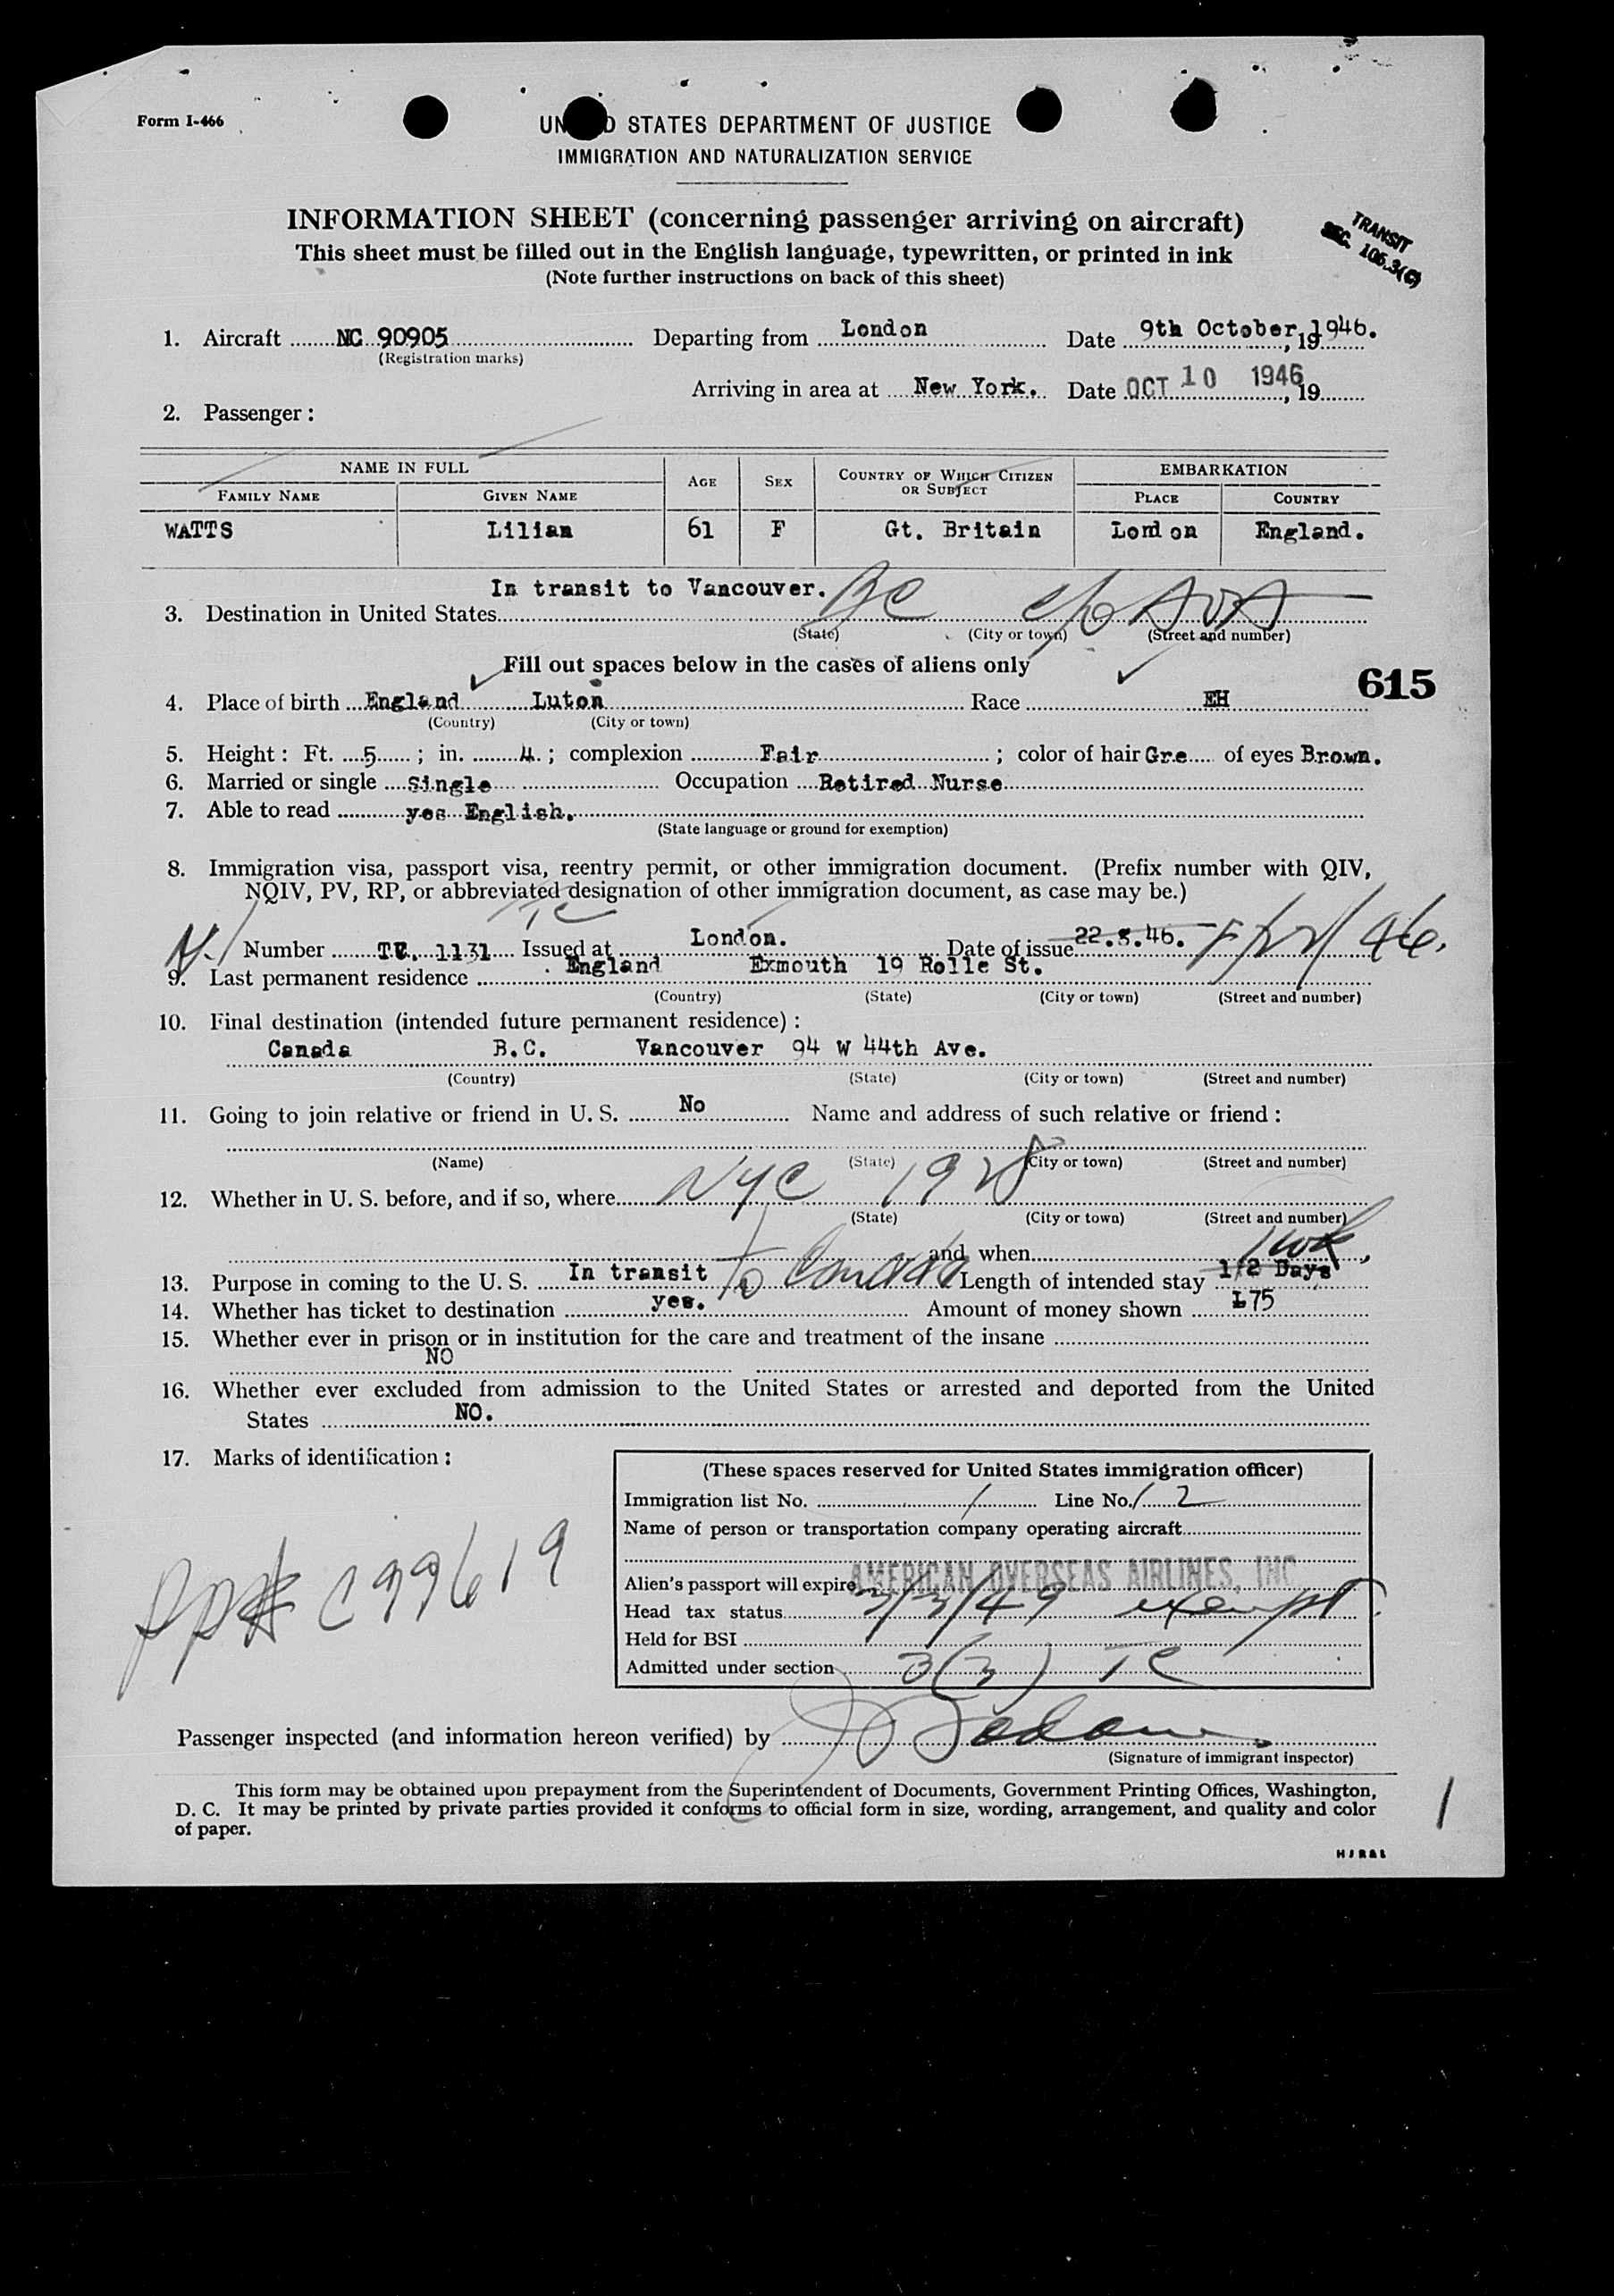 Form I-466
UN D STATES DEPARTMENT OF JUSTICE
IMMIGRATION AND NATURALIZATION SERVICE
INFORMATION SHEET (concerning passenger arriving on aircraft)
TRANSIT
SEC. 105.3(C)
This sheet must be filled out in the English language, typewritten, or printed in ink
(Note further instructions on back of this sheet)
1. Aircraft NC 90905 Departing from London Date 9th October, 1946.
(Registration marks)
Arriving in area at New York. Date OCT 10 1946, 19
2. Passenger:
NAME IN FULL AGE SEX COUNTRY OF WHICH CITIZEN OR SUBJECT EMBARKATION
FAMILY NAME GIVEN NAME PLACE COUNTRY
WATTS Lilian 61 F Gt. Britain London England.
In transit to Vancouver. BC c/o AOA
3. Destination in United States
(State) (City or town) (Street and number)
Fill out spaces below in the cases of aliens only
615
4. Place of birth England Luton Race EH
(Country) (City or town)
5. Height: Ft. 5 ; in. 4 ; complexion Fair ; color of hair Gre of eyes Brown.
6. Married or single Single Occupation Retired Nurse
7. Able to read yes English.
(State language or ground for exemption)
8. Immigration visa, passport visa, reentry permit, or other immigration document. (Prefix number with QIV,
NQIV, PV, RP, or abbreviated designation of other immigration document, as case may be.)
TC
Number 1131 Issued at London. Date of issue 22.8.46. 8/22/46.
9. Last permanent residence England Exmouth 19 Rolle St.
(Country) (State) (City or town) (Street and number)
10. Final destination (intended future permanent residence):
Canada B.C. Vancouver 94 W 44th Ave.
(Country) (State) (City or town) (Street and number)
11. Going to join relative or friend in U. S. No Name and address of such relative or friend:
(Name) (State) (City or town) (Street and number)
12. Whether in U. S. before, and if so, where NYC 1928
(State) (City or town) (Street and number)
and when
1 wk
13. Purpose in coming to the U. S. In transit to Canada Length of intended stay 1/2 Days
14. Whether has ticket to destination yes. Amount of money shown £75
15. Whether ever in prison or in institution for the care and treatment of the insane
NO
16. Whether ever excluded from admission to the United States or arrested and deported from the United
States NO.
17. Marks of identification:
(These spaces reserved for United States immigration officer)
Immigration list No. 1 Line No. 2
Name of person or transportation company operating aircraft
AMERICAN OVERSEAS AIRLINES, INC
Alien's passport will expire
Head tax status 3/3/49 exempt
Held for BSI
Admitted under section 3(3) TC
PP# C99619
Passenger inspected (and information hereon verified) by
(Signature of immigrant inspector)
This form may be obtained upon prepayment from the Superintendent of Documents, Government Printing Offices, Washington,
D. C. It may be printed by private parties provided it conforms to official form in size, wording, arrangement, and quality and color
of paper.
1